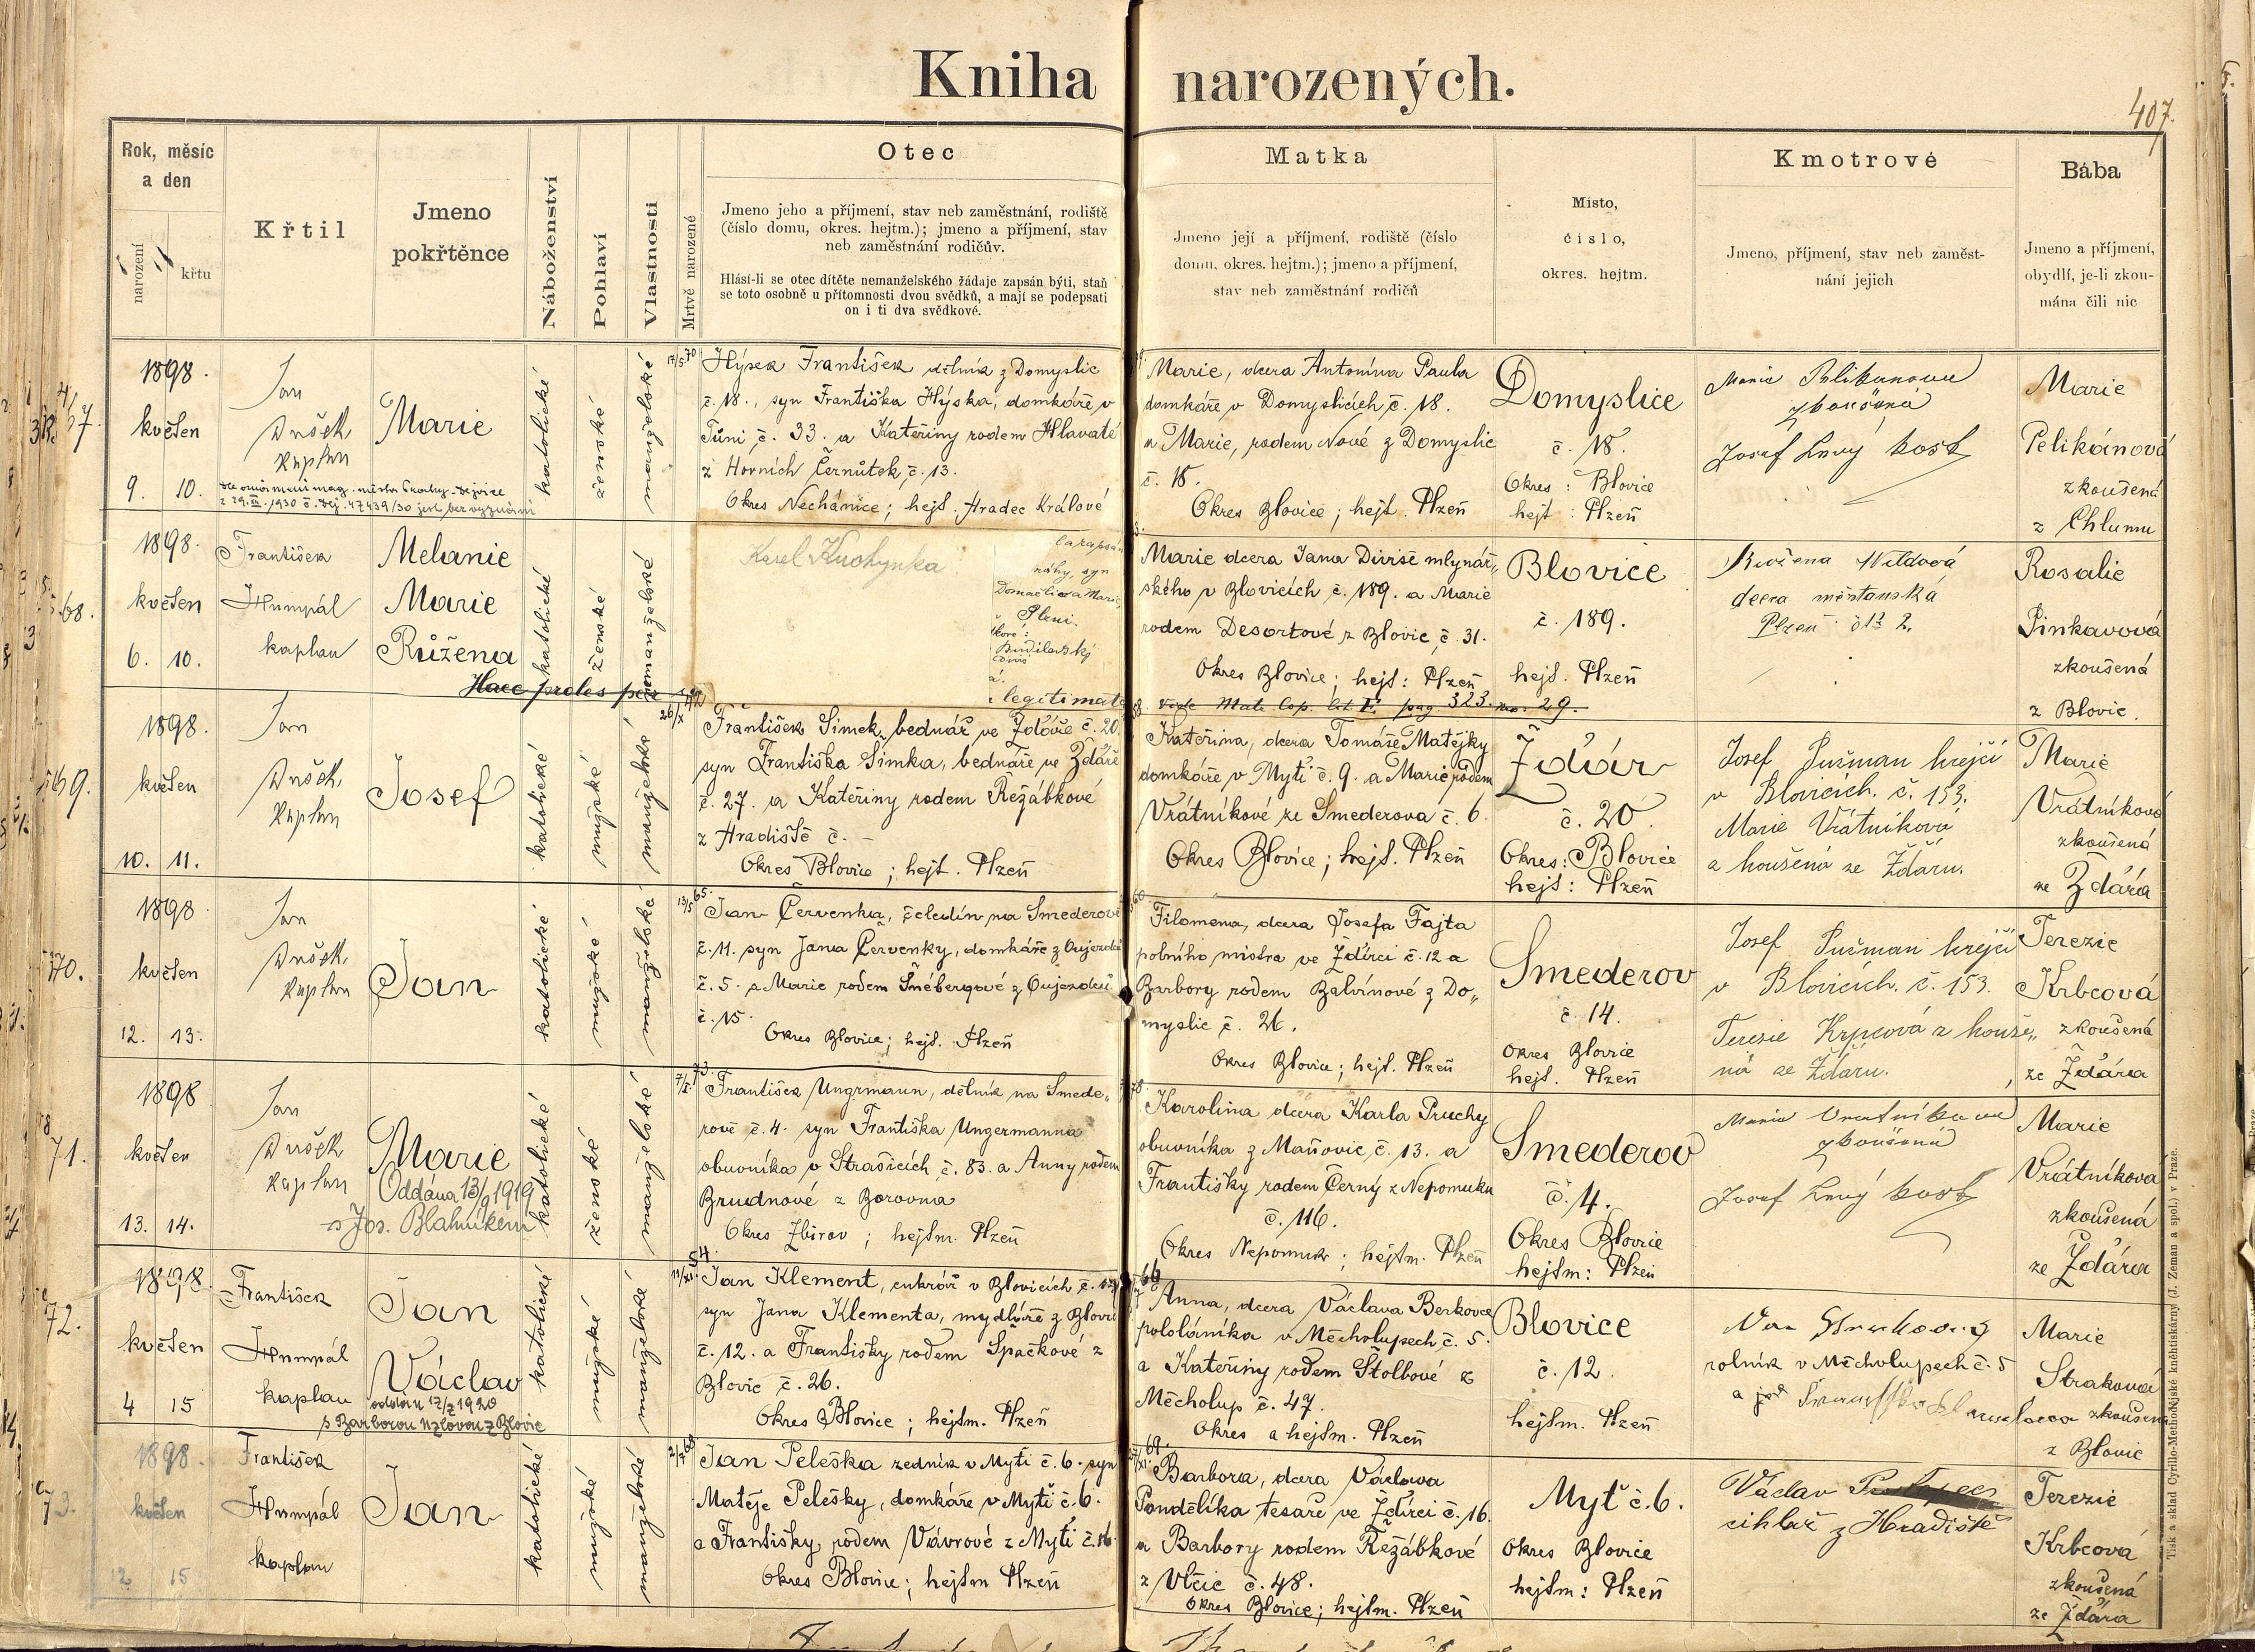 Kniha narozených.
407.
Rok, měsíc
a den
narození
křtu
Křtil
Jmeno
pokřtěnce
Náboženství
Pohlaví
Vlastnosti
Mrtvě narozené
Otec
Jmeno jeho a příjmení, stav neb zaměstnání, rodiště
(číslo domu, okres. hejtm.); jmeno a příjmení, stav
neb zaměstnání rodičův.
Hlásí-li se otec dítěte nemanželského žádaje zapsán býti, staň
se toto osobně u přítomnosti dvou svědků, a mají se podepsati
on i ti dva svědkové.
Matka
Jmeno její a příjmení, rodiště (číslo
domu, okres. hejtm.); jmeno a příjmení,
stav neb zaměstnání rodičů
Místo,
číslo,
okres. hejtm.
Kmotrové
Jmeno, příjmení, stav neb zaměst-
nání jejich
Bába
Jmeno a příjmení,
obydlí, je-li zkou-
mána čili nic
67.
1898.
květen
9. 10.
Jan
Dušek
kaplan
Marie
katolické
ženské
manželské
17/5 70
Hýsek František dělník z Domyslic
č. 18., syn Františka Hýska, domkáře v
Tůni č. 33. a Kateřiny rodem Hlavaté
z Horních Černůtek, č. 13.
Okres Nechánice; hejt. Hradec Králové
Marie, dcera Antonína Paula
domkáře v Domyslicích č. 18.
a Marie, rodem Nové z Domyslic
č. 18.
Okres Blovice; hejt. Plzeň
Domyslice
č. 18.
Okres: Blovice
hejt: Plzeň
Marie Pelikanova
zkoušená
Josef Levý kost
Marie
Pelikánová
zkoušená
z Chlumu
68.
1898.
květen
6. 10.
František
Humpál
kaplan
Melanie
Marie
Růžena
katolické
ženské
nemanželské
Karel Kuchynka
Plzni.
Haec proles per
legitimata
Marie dcera Jana Diviše mlynář„
ského v Blovicích č. 189. a Marie
rodem Desortové z Blovic, č. 31.
Okres Blovice; hejt: Plzeň
pag 323. no. 29.
Blovice
č. 189.
hejt. Plzeň
Růžena Wildová
dcera měšťanská
Plzeň
Rosalie
Pinkavová
zkoušená
z Blovic.
69.
1898.
květen
10. 11.
Jan
Dušek,
kaplan
Josef
katolické
mužské
manželské
František Šimek, bednář ve Ždáře č. 20,
syn Františka Šimka, bednáře ve Ždáře
č. 27. a Kateřiny rodem Řežábkové
z Hradiště č. –
Okres Blovice; hejt. Plzeň
Kateřina, dcera Tomáše Matějky
domkáře v Mýti č. 9. a Marie rodem
Vrátníkové ze Smederova č. 6.
Okres Blovice; hejt. Plzeň
Ždár
č. 20.
Okres: Blovice
hejt: Plzeň
Josef Sušman krejčí
v Blovicích. č. 153.
Marie Vrátníková
zkoušená ze Žďáru.
Marie
Vrátníková
zkoušená
ze Ždára
70.
1898
květen
12. 13.
Jan
Dušek,
kaplan
Jan
katolické
mužské
manželské
13/5 65.
Jan Červenka, čeledín na Smederově
č. 11. syn Jana Červenky, domkáře z Oujezda
č. 5. a Marie rodem Šnébergové z Oujezdců
č. 15.
Okres Blovice; hejt. Plzeň
Filomena, dcera Josefa Fajta
polního mistra ve Ždírci č. 12 a
Barbory rodem Balvínové z Do„
myslic č. 26.
Okres Blovice; hejt. Plzeň
Smederov
č. 14.
Okres Blovice
hejt. Plzeň
Josef Sušman krejčí
v Blovicích. č. 153.
Terezie Krpcová zkouše„
ná ze Žďáru.
Terezie
Krbcová
zkoušená
ze Ždára
71.
1898
květen
13. 14.
Jan
Dušek
kaplan
Marie
Oddána 13/9 1919
s Jos. Blahníkem
katolické
ženské
manželské
František Ungrmann, dělník na Smede„
rově č. 4. syn Františka Ungermanna
obuvníka v Strašicích č. 83. a Anny rodem
Brudnové z Borovna
Okres Zbirov; hejtm. Plzeň
Karolina dcera Karla Pruchy
obuvníka z Maňovic, č. 13. a
Františky rodem Černý z Nepomuku
č. 116.
Okres Nepomuk; hejtm. Plzeň
Smederov
č. 4.
Okres Blovice
hejtm: Plzeň
Marie Vratníkova
zkoušená
Josef Levý kost
Marie
Vrátníkova
zkoušená
ze Ždára
72.
1898.
květen
4 15
František
Humpál
kaplan
Jan
Václav
oddán 17/7 1920
s Barborou z Blovic
katolické
mužské
manželské
54.
Jan Klement, cukrář v Blovicích č.
syn Jana Klementa, mydláře z Blovic
č. 12. a Františky rodem Špačkové z
Blovic č. 26.
Okres Blovice; hejtm. Plzeň
66
Anna, dcera Václava Berkovce
pololáníka v Měcholupech č. 5.
a Kateřiny rodem Štolbové z
Měcholup č. 47.
Okres a hejtm. Plzeň
Blovice
č. 12.
hejtm. Plzeň
rolník v Měcholupech č. 5
Marie
Straková
zkoušená
z Blovic
73.
1898.
květen
12 15
František
Humpál
kaplan
Jan
katolické
mužské
manželské
Jan Peleška zedník v Mýti č. 6. syn
Matěje Pelešky, domkáře v Mýti č. 6.
a Františky, rodem Vávrové z Mýti č. 16.
Okres Blovice; hejtm Plzeň
69.
Barbora, dcera Václava
Pondělíka tesaře ve Ždírci č. 16.
a Barbory rodem Řežábkové
z Vlčic č. 48.
Okres Blovice; hejtm. Plzeň
Myť č. 6.
Okres Blovice
hejtm: Plzeň
Václav
cihlář z Hradiště
Terezie
Krbcová
zkoušená
ze Ždára
Tisk a sklad Cyrillo-Methodějské knihtiskárny (J. Zeman a spol.) v Praze.